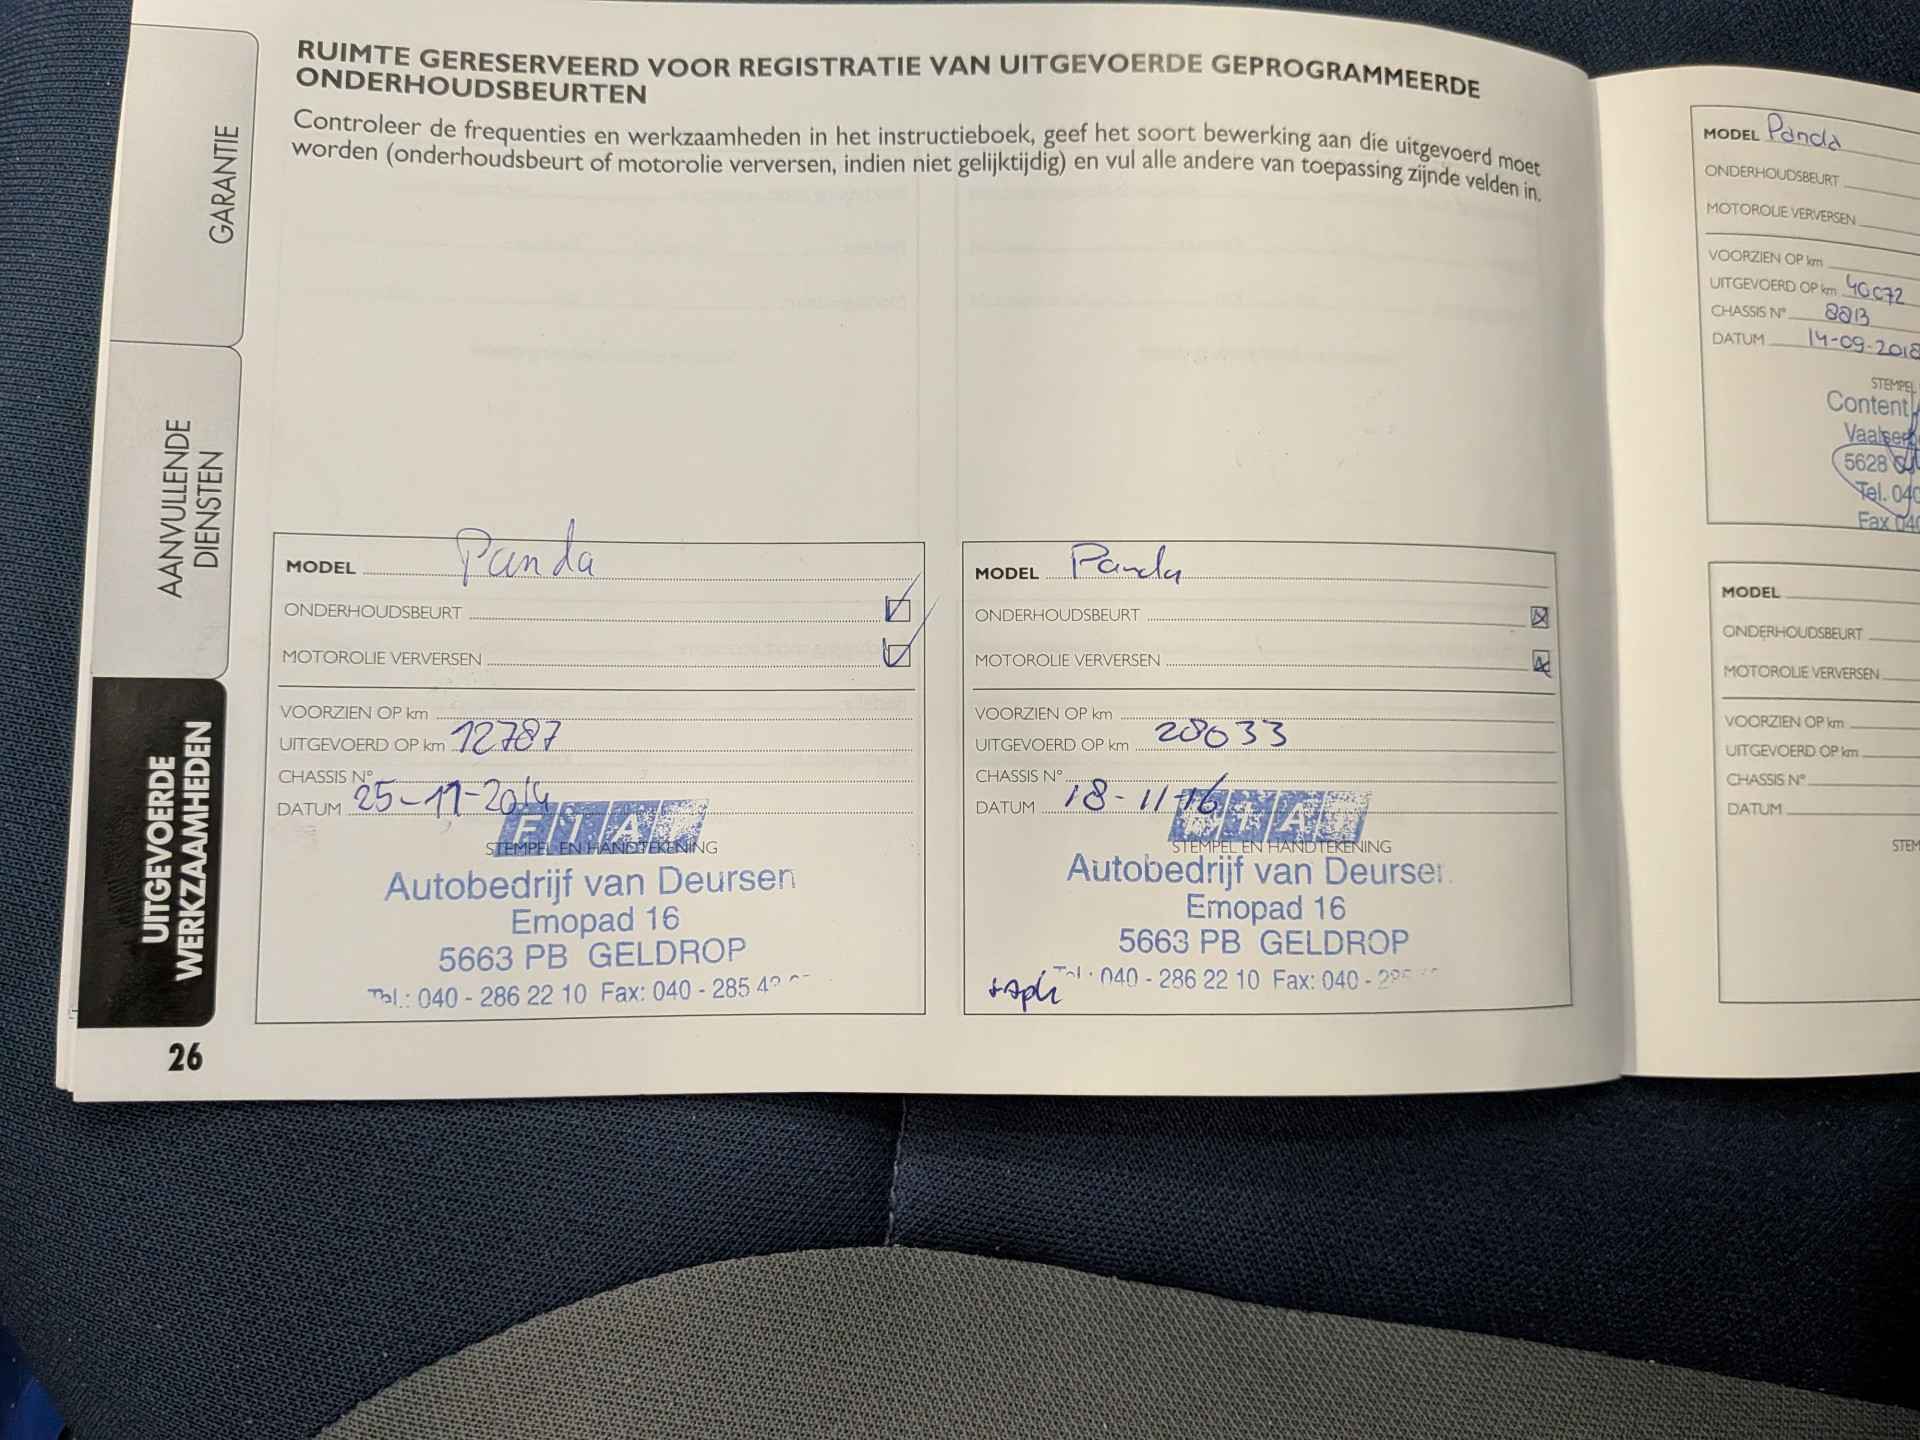 GARANTIE
AANVULLENDE
DIENSTEN
UITGEVOERDE
WERKZAAMHEDEN
RUIMTE GERESERVEERD VOOR REGISTRATIE VAN UITGEVOERDE GEPROGRAMMEERDE
ONDERHOUDSBEURTEN
Controleer de frequenties en werkzaamheden in het instructieboek, geef het soort bewerking aan die uitgevoerd moet
worden (onderhoudsbeurt of motorolie verversen, indien niet gelijktijdig) en vul alle andere van toepassing zijnde velden in.
MODEL Panda
ONDERHOUDSBEURT
MOTOROLIE VERVERSEN
VOORZIEN OP km
UITGEVOERD OP km 12787
CHASSIS N°
DATUM 25-11-2014
FIAT
STEMPEL EN HANDTEKENING
Autobedrijf van Deursen
Emopad 16
5663 PB GELDROP
Tel.: 040 - 286 22 10 Fax: 040 - 285
MODEL Panda
ONDERHOUDSBEURT
MOTOROLIE VERVERSEN
VOORZIEN OP km
UITGEVOERD OP km 28033
CHASSIS N°
DATUM 18-11-16
FIAT
STEMPEL EN HANDTEKENING
Autobedrijf van Deurser
Emopad 16
5663 PB GELDROP
Tel.: 040 - 286 22 10 Fax: 040 -
26
MODEL Panda
ONDERHOUDSBEURT
MOTOROLIE VERVERSEN
VOORZIEN OP km
UITGEVOERD OP km 40072
CHASSIS N° 88B
DATUM 14-09-2018
STEMPEL
Content
5628
Tel. 040
Fax 040
MODEL
ONDERHOUDSBEURT
MOTOROLIE VERVERSEN
VOORZIEN OP km
UITGEVOERD OP km
CHASSIS N°
DATUM
STEM